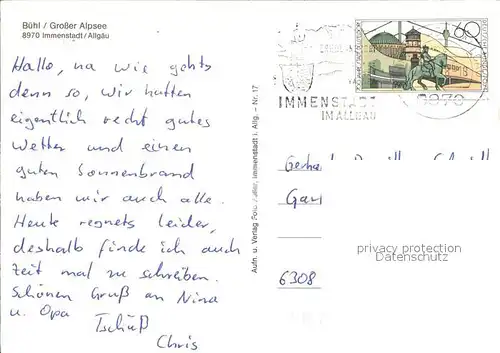 Bühl / Großer Alpsee
8970 Immenstadt/Allgäu
Hallo, na wie gehts
denn so, wir hatten
eigentlich recht gutes
Wetter und einen
guten Sonnenbrand
haben wir auch alle.
Heute regnets leider,
deshalb finde ich auch
Zeit mal zu schreiben.
Schönen Gruß an Nina
u. Opa
Tschüß
Chris
Aufn. u. Verlag Foto Immenstadt i. Allg. - Nr. 17
60
IMMENSTADT
IM ALLGÄU
8970
6308
privacy protection
Datenschutz